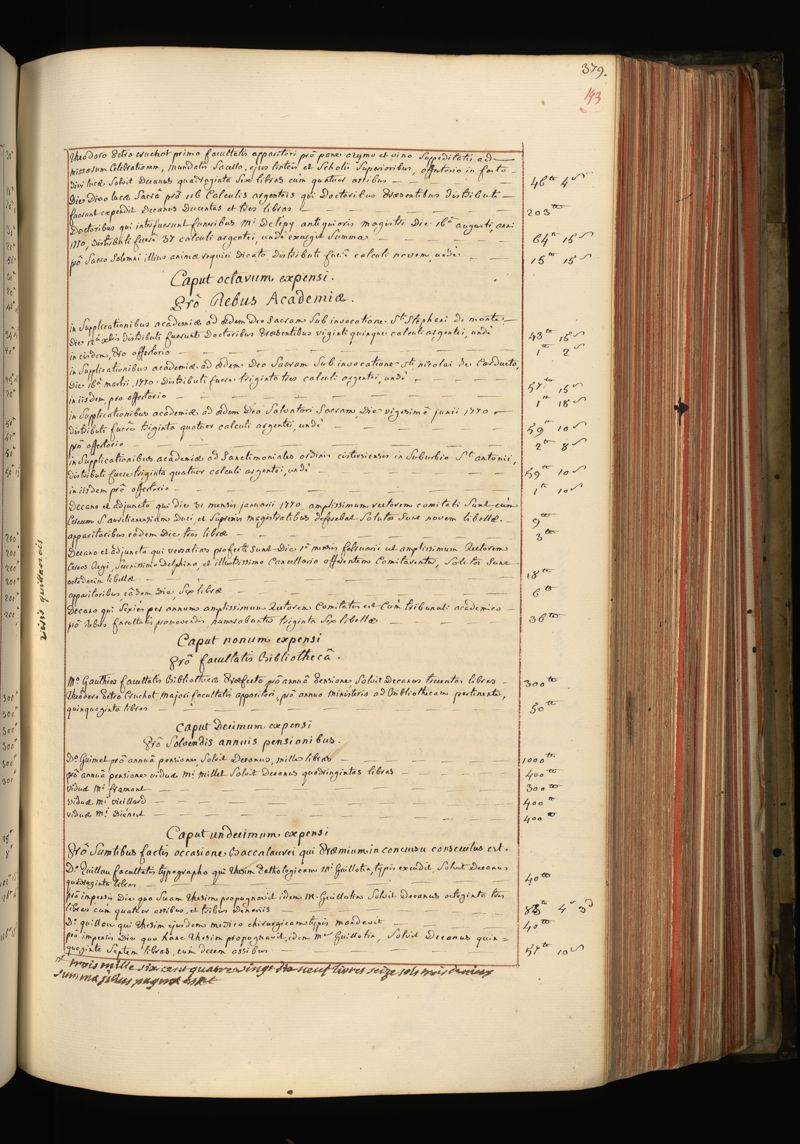 379.
193
Theodoro Petro Cruchot primo facultatis apparitori prô pane azymo et vino Suppeditatis ad
missarum Celebrationem, mundatis Sacello, ejus linteis et Scholis Superioribus, offertorio in festo
divi lucæ Solvit Decanus quadraginta Sex libras cum quatuor assibus 46 ₶ 4 s
Die Divo lucæ Sacrâ prô 116 Calculis argenteis qui Doctoribus Præsentibus distributi
fuerunt expendit Decanus Ducentas et tres libras 203 ₶
Doctoribus qui interfuerunt funeribus Mi. De lépy antiquioris magistri Die 16â augusti, anni
1770, Distributi fuere 37 calculi argentei, undè exurgit Summa 64 ₶ 15 s
prô Sacro Solemni illius animæ requiei Dicato Distributi fuere calculi novem, undè 15 ₶ 15 s
Caput octavum expensi.
Prô Rebus Academiæ.
in Supplicationibus academiæ ad ædem Deo Sacram Sub invocatione Sti. Stephani de monte
Die 12â xbris distributi fuerunt Doctoribus Præsentibus viginti quinque calculi argentei, undè 43 ₶ 15 s
in eisdem, pro offertorio 1 ₶ 2 s
in Supplicationibus academiæ ad ædem Deo Sacram Sub invocatione Sti. nicolai de Cardueto,
Die 16â martii, 1770. Distributi fuere triginta tres calculi argentei, undè 57 ₶ 15 s
in iisdem pro offertorio 1 ₶ 18 s
in Supplicationibus académiæ ad ædem Deo Salvatori Sacram, Die vigesimâ junii 1770
distributi fuere triginta quatuor calculi argentei, undè 59 ₶ 10 s
prô offertorio 2 ₶ 8 s
in Supplicationibus academiæ ad Sanctimoniales ordinis cisterciensis in Suburbio Sti. antonii,
distributi fuere triginta quatuor calculi argentei, undè 59 ₶ 10 s
in iisdem prô offertorio 1 ₶ 10 s
Decano et adjuncto qui die 31 mensis januarii 1770 amplissimum rectorem comitati Sunt cùm
Cereum Saurelianensium Duci et Supremis magistratibus deferebat Solutæ Sunt novem libellæ. 9 ₶
apparitoribus eâdem Die tres libræ 3 ₶
Decano et adjuncto qui versalias profecti Sunt Die 1â mensis februarii ut amplissimum Rectorem
Cereos Regi, Serenissimo Delphino, et illustrissimo Cancellario offerentem Comitarentur, Solutæ Sunt
octodecim libellæ 18 ₶
apparitoribus eâdem Die Sex libræ 6 ₶
Decano qui Sexiés per annum amplissimum Rectorem Comitatus est Cùm tribunali academico
prô rebus facultatis promovendis numerabuntur triginta Sex libellæ 36 ₶
Caput nonum expensi
Prô facultatis Bibliothecâ.
Mo. Gauthier facultatis Bibliothecæ Præfecto, prô annuâ Pensione Solvit Decanus trecentas libras 300 ₶
Theodoro Petro Cruchot majori facultatis apparitori, prô annuo ministerio ad Bibliothecam pertinente,
quinquaginta libras 50 ₶
Caput Decimum expensi
Prô Solvendis annuis pensionibus.
Do. Guimet prô annuâ pensione, Solvit Decanus, mille libras 1000 ₶
prô annuâ pensione viduæ Mi. millet Solvit Decanus quadringintas libras 400 ₶
viduæ Mi. framont 300 ₶
viduæ Mi. vieillard 400 ₶
viduæ Mi. Dienert 400 ₶
Caput undecimum expensi
Prô Sumtibus factis occasione Baccalaurei qui Præmium in concursu consecutus est.
Do. Quillau facultatis typographo qui thesim Pathologicam Mi. Guillotin, typis excudit, Solvit Decanus
quadraginta libras 40 ₶
prô impensis Die quo Suam thesim propugnavit idem M. Guillotin Solvit Decanus octoginta tres
libras cum quatuor assibus, et tribus Denariis 83 ₶ 4 s 3 d
Do. quillau qui thesim ejusdem medico chirurgicam typis mandavit 40 ₶
prô impensis Die quo hanc thesim propugnavit, idem Mr. Guillotin, Solvit Decanus quin-
quaginta Septem libras, cum decem assibus 57 ₶ 10 s
trois mille six cent quatre vingt dix neuf livres seize sols trois deniers
Summa jllius paginæ est